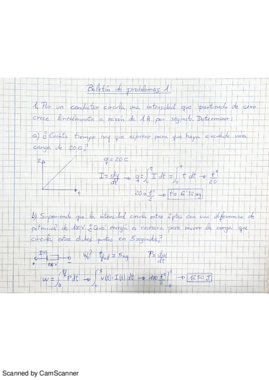 Boletín de problemas 1
1. Por un conductor circula una intensidad que partiendo de cero
crece linealmente a razón de 1A por segundo. Determinar:
a) ¿Cuánto tiempo hay que esperar para que haya circulado una
carga de 20C?
q=20C
I = dq/dt → q = ∫ I dt = ∫ t dt → t²/2
20 = t²/2 → t = 6'32 seg
t
b) Suponiendo que la intensidad circula entre 2 ptos con una diferencia de
potencial de 100V. ¿Qué energía es necesaria para mover la carga que
circula entre dichos puntos en 5 segundos?
I(t)
100V
w?
P =
w = ∫ P dt → ∫ v(t)·I(t) dt → 100 t²/2 → 1250 J
Scanned by CamScanner